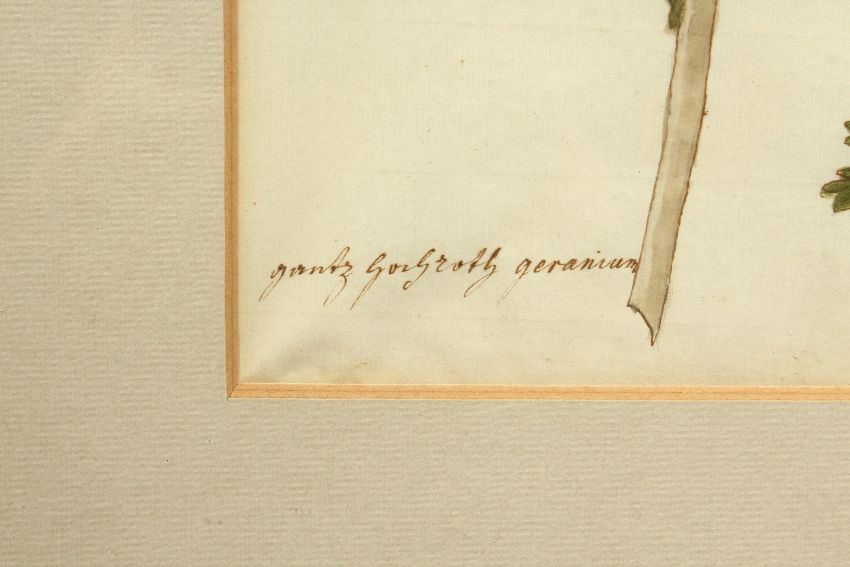 gantz hochroth geranium